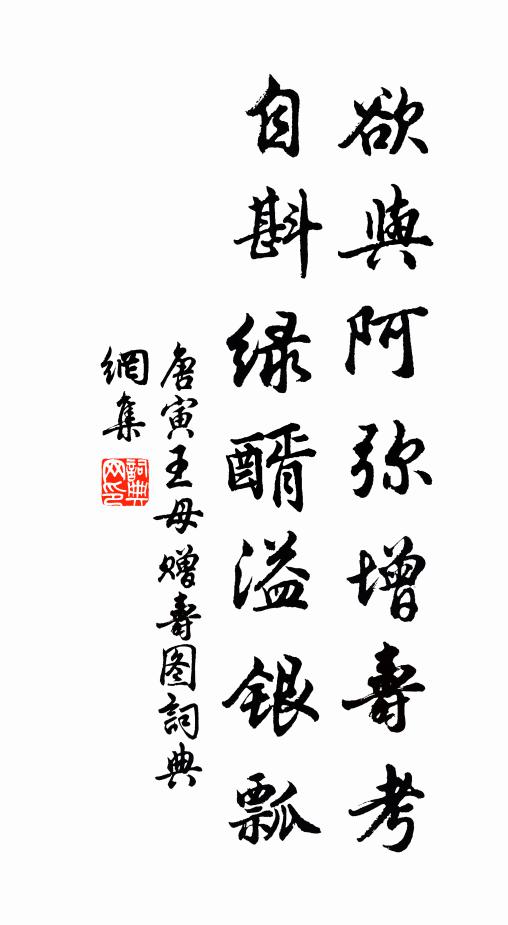 欲與阿弥增壽考
自斟绿醑溢银瓢
唐寅王母赠壽图詞典
網集
詞典网印